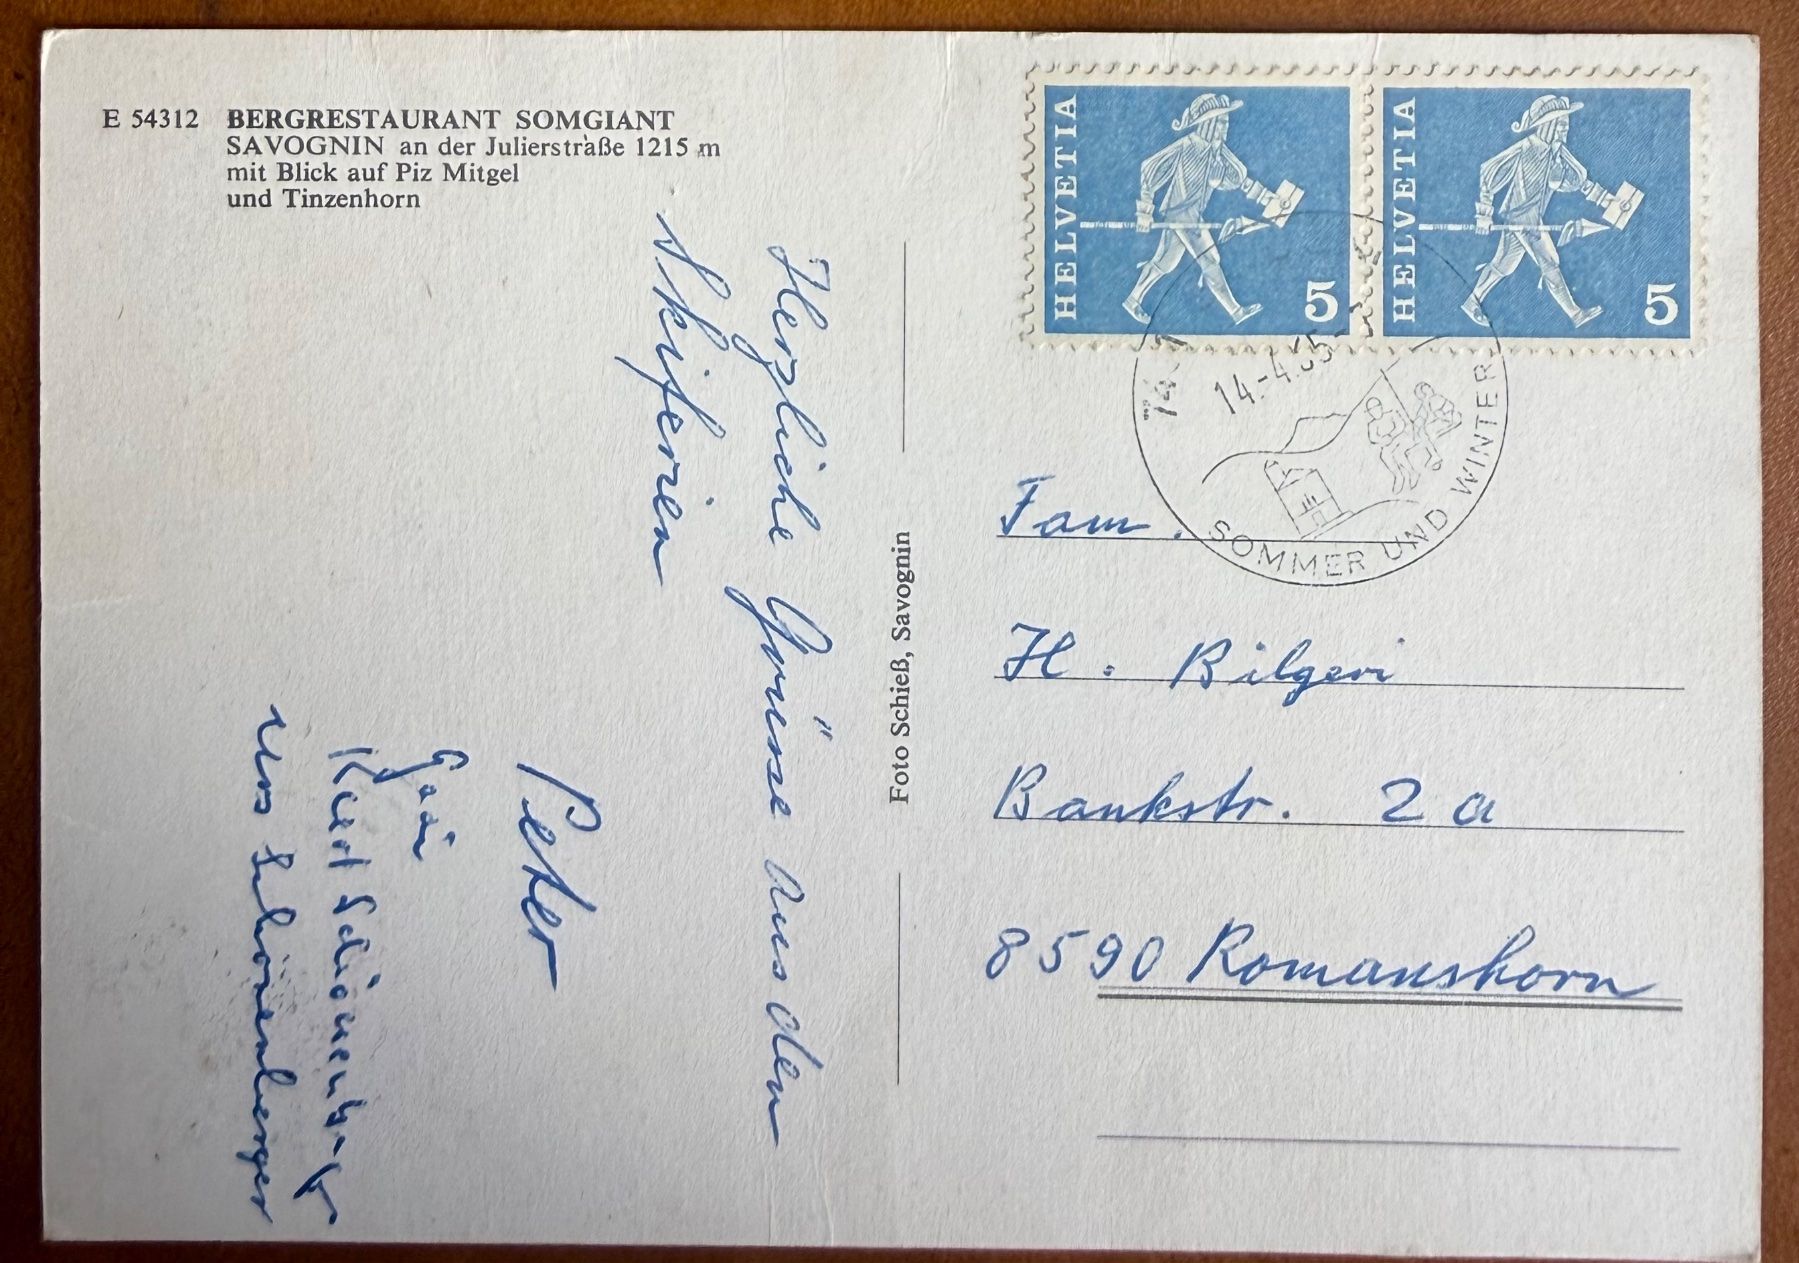 E 54312 BERGRESTAURANT SOMGIANT
SAVOGNIN an der Julierstraße 1215 m
mit Blick auf Piz Mitgel
und Tinzenhorn
Herzliche Grüsse aus den
Skiferien
Peter
Kurt Schönenberger
Urs Schönenberger
Foto Schieß, Savognin
HELVETIA 5
HELVETIA 5
14.-4.
SOMMER UND WINTER
Fam.
H. Bilgeri
Bankstr. 2a
8590 Romanshorn